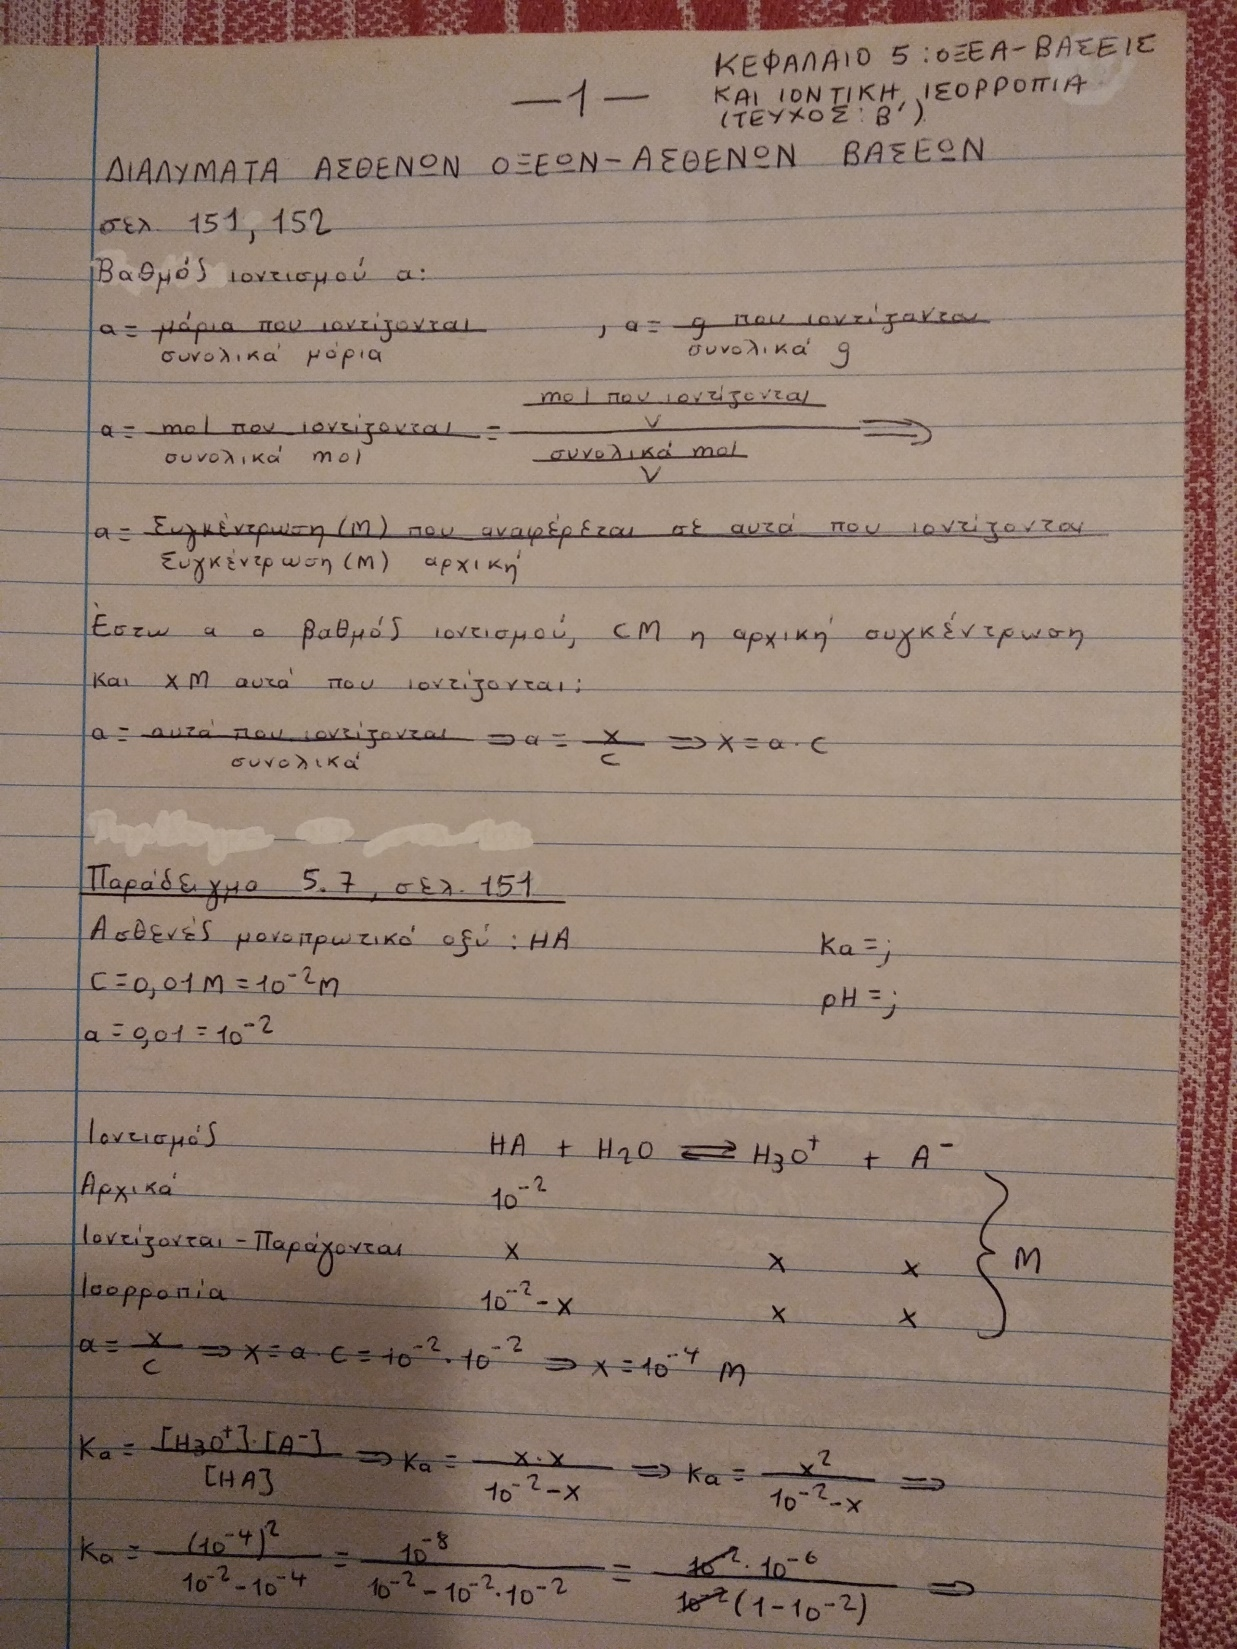 ΚΕΦΑΛΑΙΟ 5: ΟΞΕΑ-ΒΑΣΕΙΣ
ΚΑΙ ΙΟΝΤΙΚΗ ΙΣΟΡΡΟΠΙΑ
(ΤΕΥΧΟΣ: Β')
—1—
ΔΙΑΛΥΜΑΤΑ ΑΣΘΕΝΩΝ ΟΞΕΩΝ-ΑΣΘΕΝΩΝ ΒΑΣΕΩΝ
σελ. 151, 152
Βαθμός ιοντισμού α:
α = μόρια που ιοντίζονται / συνολικά μόρια , α = g που ιοντίζονται / συνολικά g
α = mol που ιοντίζονται / συνολικά mol = (mol που ιοντίζονται / V) / (συνολικά mol / V) ⇒
α = Συγκέντρωση (Μ) που αναφέρεται σε αυτά που ιοντίζονται / Συγκέντρωση (Μ) αρχική
Έστω α ο βαθμός ιοντισμού, CM η αρχική συγκέντρωση
και xM αυτά που ιοντίζονται:
α = αυτά που ιοντίζονται / συνολικά ⇒ α = x / C ⇒ x = α · C
Παράδειγμα 5.7, σελ. 151
Ασθενές μονοπρωτικό οξύ: HA Ka = ;
C = 0,01 M = 10⁻² M pH = ;
α = 0,01 = 10⁻²
Ιοντισμός HA + H₂O ⇌ H₃O⁺ + A⁻
Αρχικά 10⁻²
Ιοντίζονται-Παράγονται x x x } M
Ισορροπία 10⁻² - x x x
α = x / C ⇒ x = α · C = 10⁻² · 10⁻² ⇒ x = 10⁻⁴ M
Ka = [H₃O⁺]·[A⁻] / [HA] ⇒ Ka = x·x / (10⁻² - x) ⇒ Ka = x² / (10⁻² - x) ⇒
Ka = (10⁻⁴)² / (10⁻² - 10⁻⁴) = 10⁻⁸ / (10⁻² - 10⁻²·10⁻²) = 10⁻² · 10⁻⁶ / 10⁻²(1 - 10⁻²) ⇒